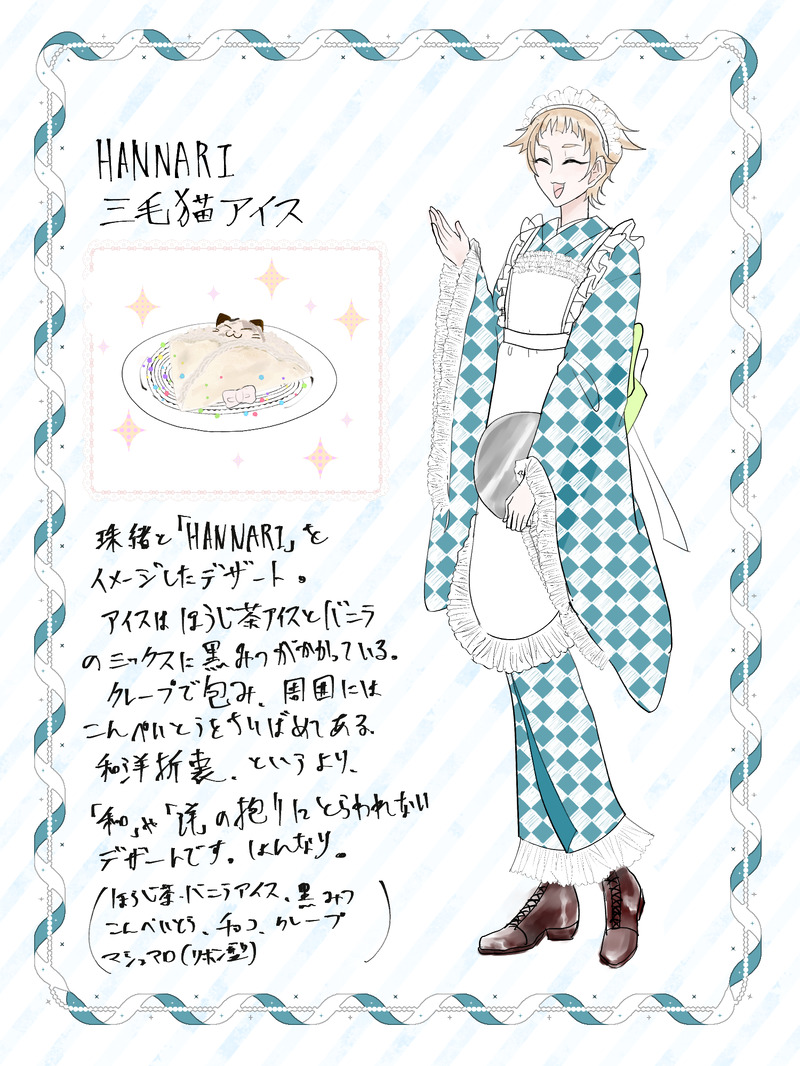 HANNARI
三毛猫アイス
珠緒と「HANNARI」を
イメージしたデザート。
アイスはほうじ茶アイスとバニラ
のミックスに黒みつがかかっている。
クレープで包み、周囲には
こんぺいとうをちりばめてある。
和洋折衷、というより、
「和」や「洋」の括りにとらわれない
デザートです。はんなり。
(ほうじ茶・バニラアイス、黒みつ
こんぺいとう、チョコ、クレープ
マシュマロ(リボン型))